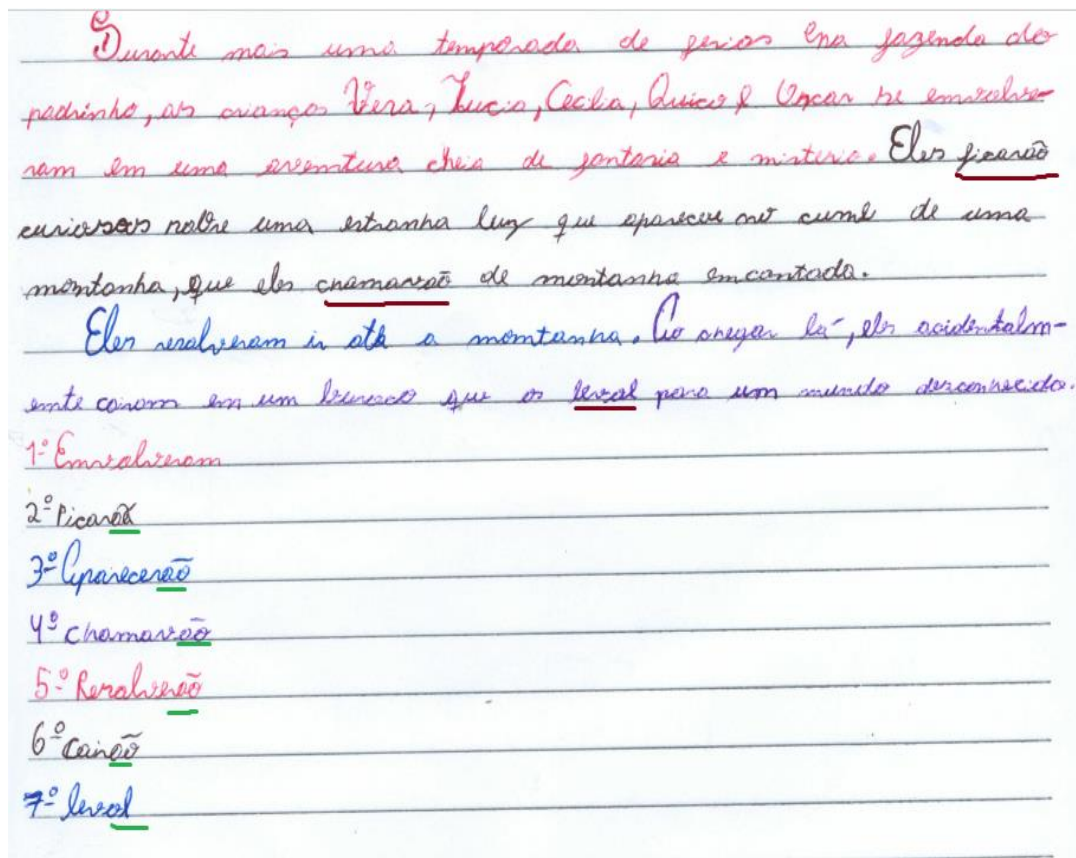 Durante mais uma temporada de ferias ena fazenda do
padrinho, as crianças Vera, Lucia, Cecilia, Quico e Oscar se envolve-
ram em uma aventura cheia de fantasia e misterio. Eles ficarão
curiosos sobre uma estranha luz que apareceu no cume de uma
montanha, que eles chamavão de montanha encantada.
Eles resolveram ir até a montanha. Ao chegar lá, eles acidentalm-
ente cairam em um buraco que os leval para um mundo desconhecido.
1º Envolveram
2º Ficarão
3º Aparecerão
4º Chamavão
5º Resolverão
6º Cairão
7º leval